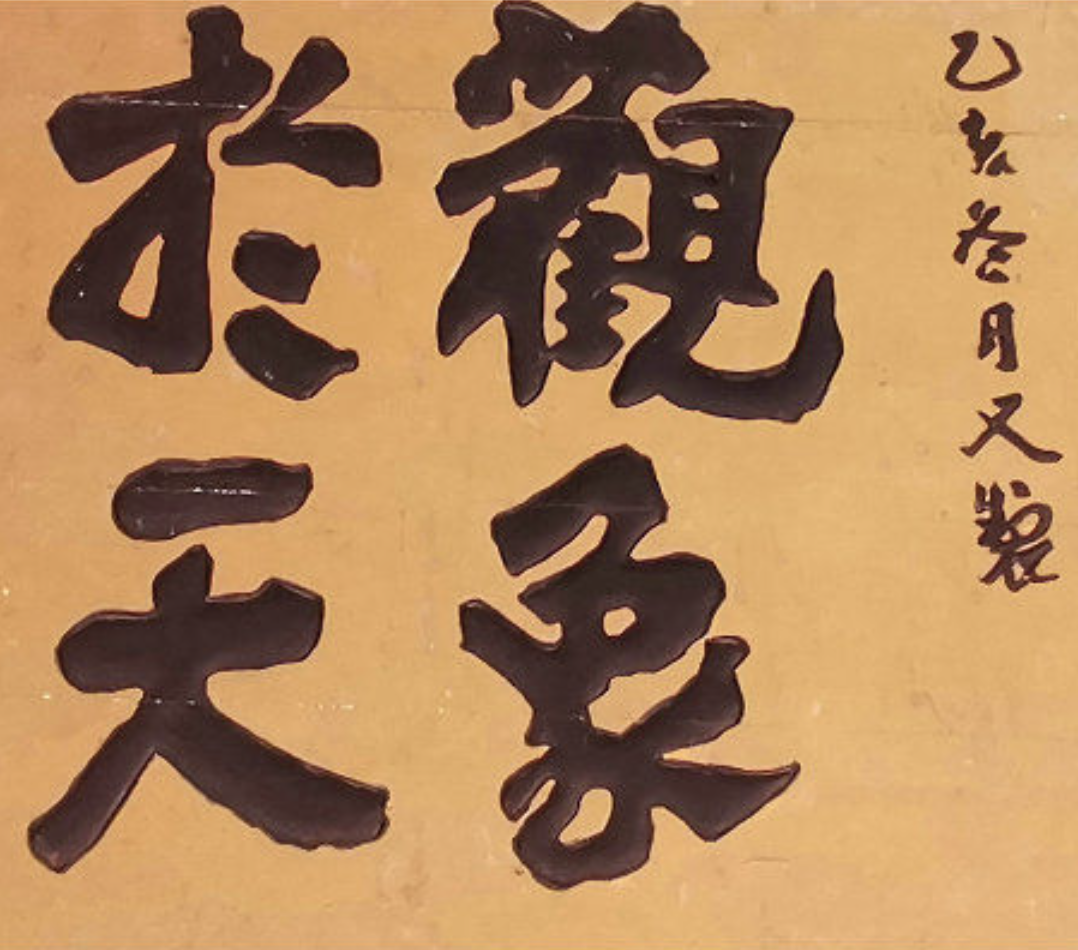 乙亥月又製
觀象
於天